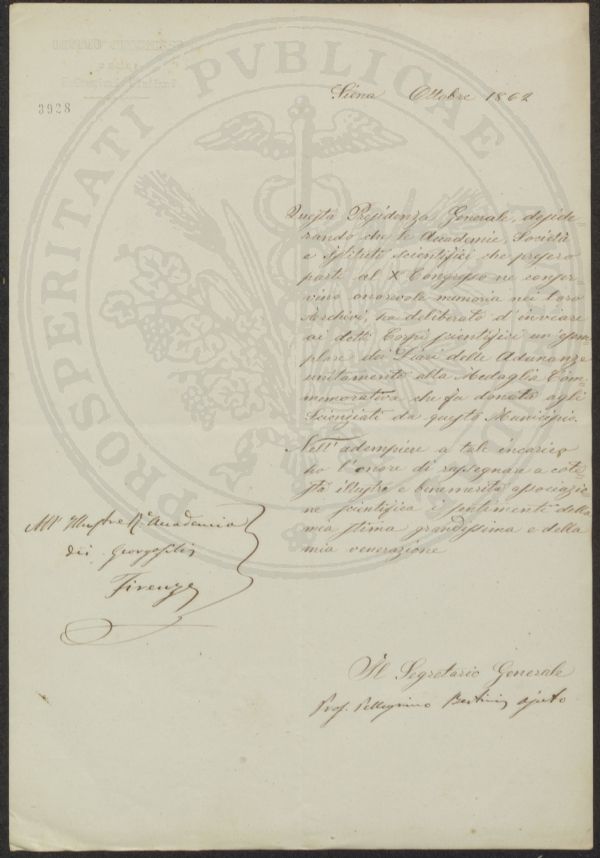 3928
PROSPERITATI PVBLICAE
Siena Ottobre 1862
Questa Presidenza Generale, deside
rando che le Accademie, Società
e Istituti scientifici che presero
parte al X° Congresso ne conser-
vino onorevole memoria nei loro
Archivi, ha deliberato d'inviare
ai detti Corpi scientifici un'esem
plare dei Diari delle Adunanze
unitamente alla Medaglia Com=
memorativa che fu donata agli
Scienziati da questo Municipio.
Nell'adempiere a tale incarico
ho l'onore di rassegnare a cote-
sta illustre e benemerita associazio
ne scientifica i sentimenti della
mia stima grandissima e della
mia venerazione
All' Illustre R.e Accademia
dei Georgofili
Firenze
Il Segretario Generale
Prof. Pellegrino Bertini ajuto